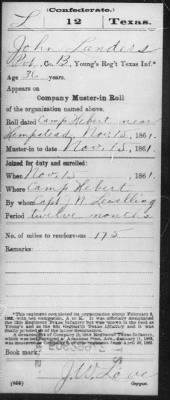 (Confederate.)
L 12 Texas.
John Landers
Pvt., Co. B, Young's Reg't Texas Inf.*
Age 36 years.
Appears on
Company Muster-in Roll
of the organization named above.
Roll dated Camp Hebert near
Hempstead, Nov. 15, 1861.
Muster-in to date Nov. 15, 1861.
Joined for duty and enrolled:
When Nov 15, 1861.
Where Camp Hebert
By whom Capt. J. N.
Period twelve months
No. of miles to rendezvous 175
Remarks:
Book mark:
J. W. Love
Copyist.